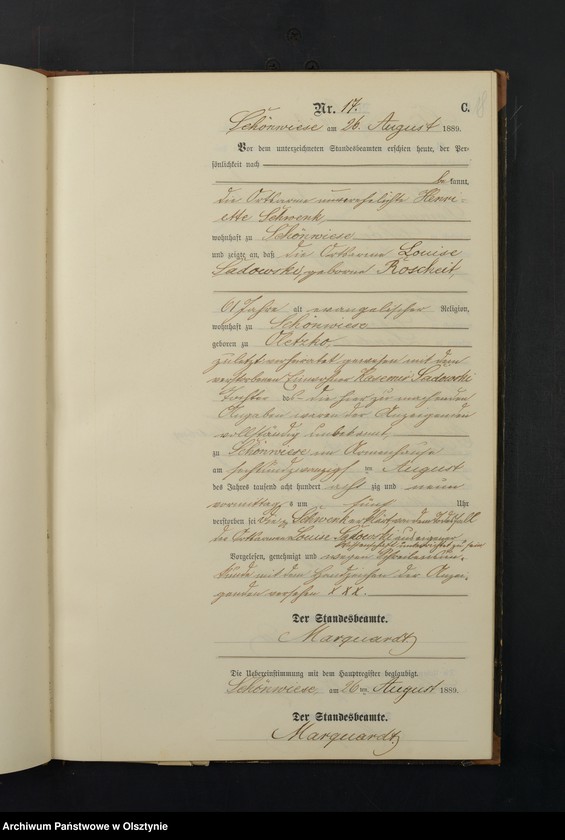 Nr. 17. C.
Schönwiese am 26. August 1889.
Vor dem unterzeichneten Standesbeamten erschien heute, der Per-
sönlichkeit nach
be kannt,
die Ortsarme unverehelichte Henri-
ette Schwenk
wohnhaft zu Schönwiese
und zeigte an, daß die Ortsarme Louise
Sadowski, geborne Roscheit,
61 Jahre alt evangelischer Religion,
wohnhaft zu Schönwiese
geboren zu Oletzko,
zuletzt verheiratet gewesen mit dem
verstorbenen Einwohner Sadowski
Tochter de die hier zu machenden
Angaben waren der Anzeigenden
vollständig unbekannt,
zu Schönwiese im Armenhause
am sechsundzwanzigsten August
des Jahres tausend acht hundert acht zig und neun
vormittags um fünf Uhr
verstorben sei Schwenk erklärt von dem Todesfall
der Ortsarmen Louise Sadowski aus eigener
Wissenschaft unterrichtet zu sein
Vorgelesen, genehmigt und wegen Schreibensun-
kunde mit dem Handzeichen der Anzei-
genden versehen X X X.
Der Standesbeamte.
Marquardt
Die Uebereinstimmung mit dem Hauptregister beglaubigt.
Schönwiese, am 26ten August 1889.
Der Standesbeamte.
Marquardt
Archiwum Państwowe w Olsztynie